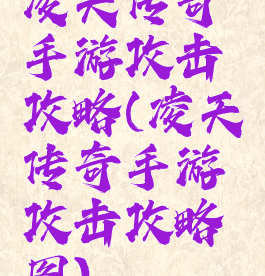 凌天传奇
手游攻击
攻略(凌天
传奇手游
攻击攻略
图)